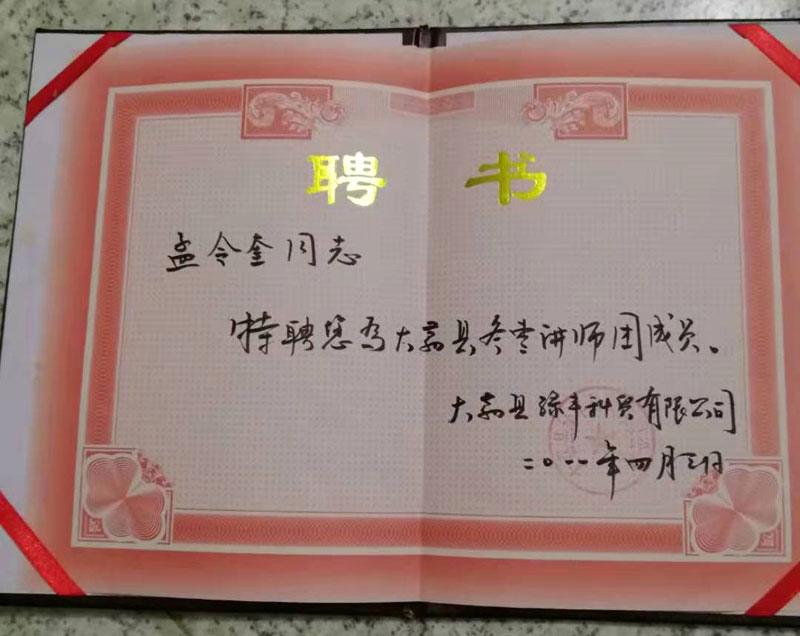 聘书
孟令奎同志
特聘您为大荔县冬枣讲师团成员。
大荔县绿丰科贸有限公司
二〇一一年四月三日